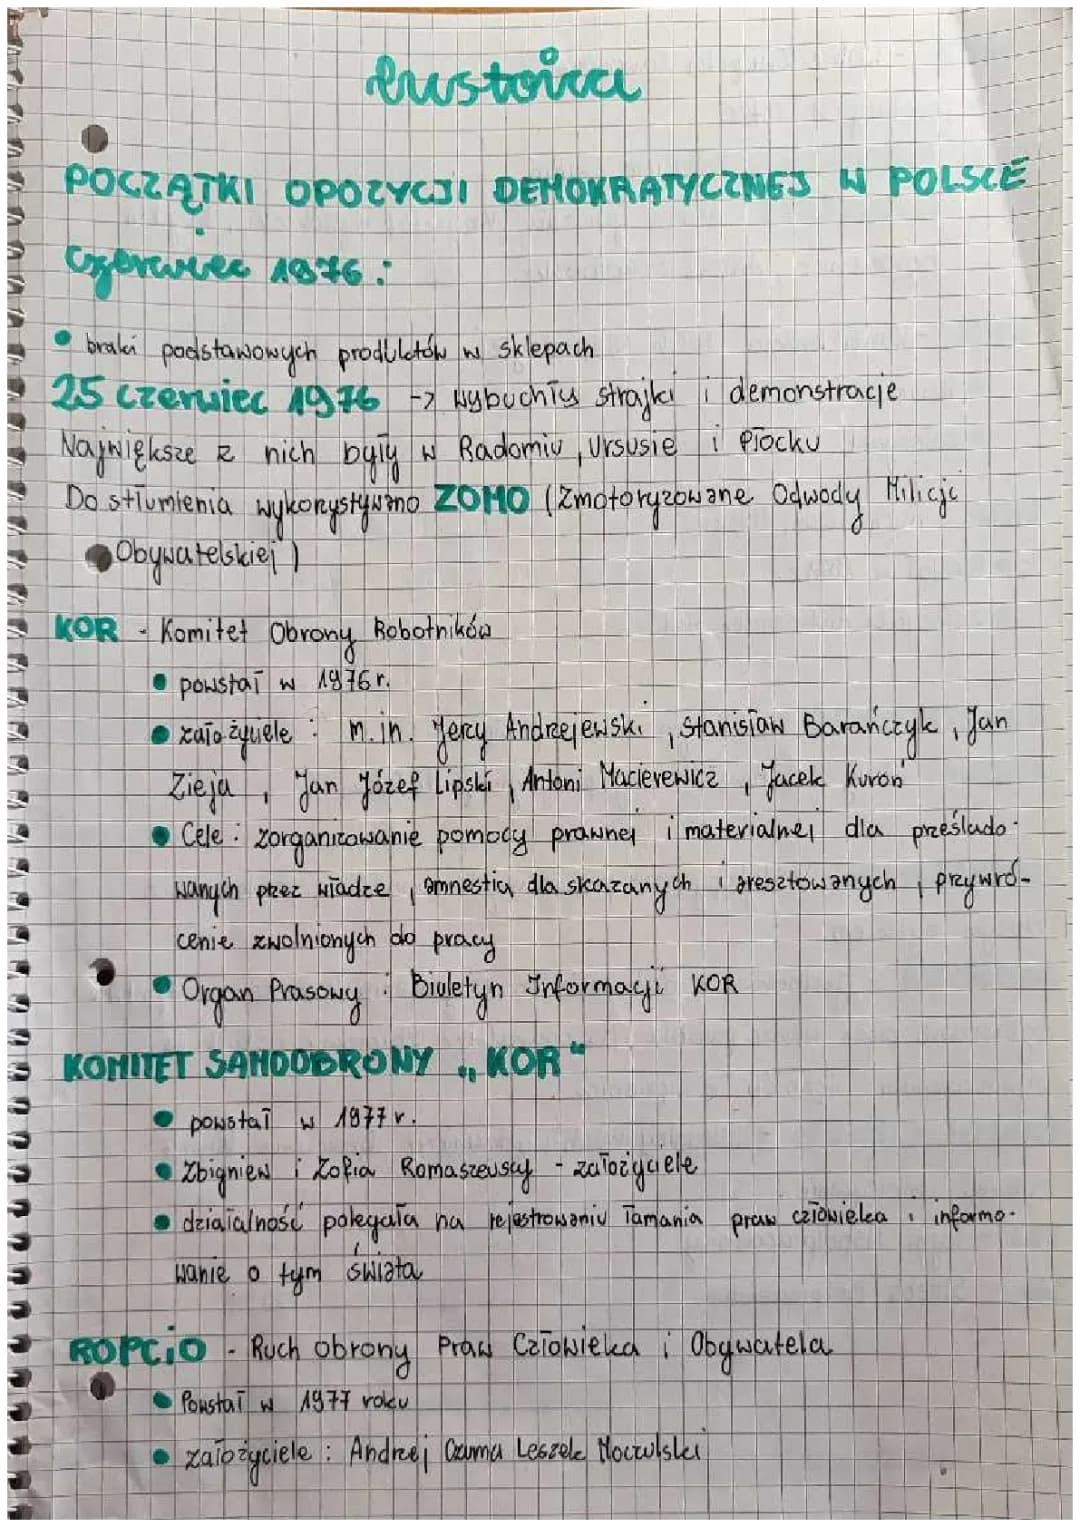 historia
POCZĄTKI OPOZYCJI DEMOKRATYCZNEJ W POLSCE
Czerwiec 1976 :
• braki podstawowych produktów w sklepach
25 czerwiec 1976 -> wybuchły strajki i demonstracje
Największe z nich były w Radomiu, Ursusie i Płocku
Do stłumienia wykorzystywano ZOMO (Zmotoryzowane Odwody Milicji
Obywatelskiej)
KOR - Komitet Obrony Robotników
• powstał w 1976 r.
• założyciele : m.in. Jerzy Andrzejewski, Stanisław Barańczyk, Jan
Zieja, Jan Józef Lipski, Antoni Macierewicz, Jacek Kuroń
• Cele : zorganizowanie pomocy prawnej i materialnej dla prześlado-
wanych przez władze, amnestia dla skazanych i aresztowanych, przywró-
cenie zwolnionych do pracy
• Organ Prasowy : Biuletyn Informacji KOR
KOMITET SAMOOBRONY „KOR"
• powstał w 1977 r.
• Zbigniew i Zofia Romaszewscy - założyciele
• działalność polegała na rejestrowaniu łamania praw człowieka i informo-
wanie o tym świata
ROPCiO - Ruch obrony Praw Człowieka i Obywatela
• Powstał w 1977 roku
• założyciele : Andrzej Czuma Leszek Moczulski